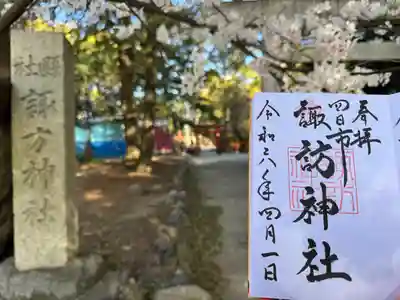 縣社
諏訪神社
奉拝
四日市
諏訪神社
令和六年四月一日